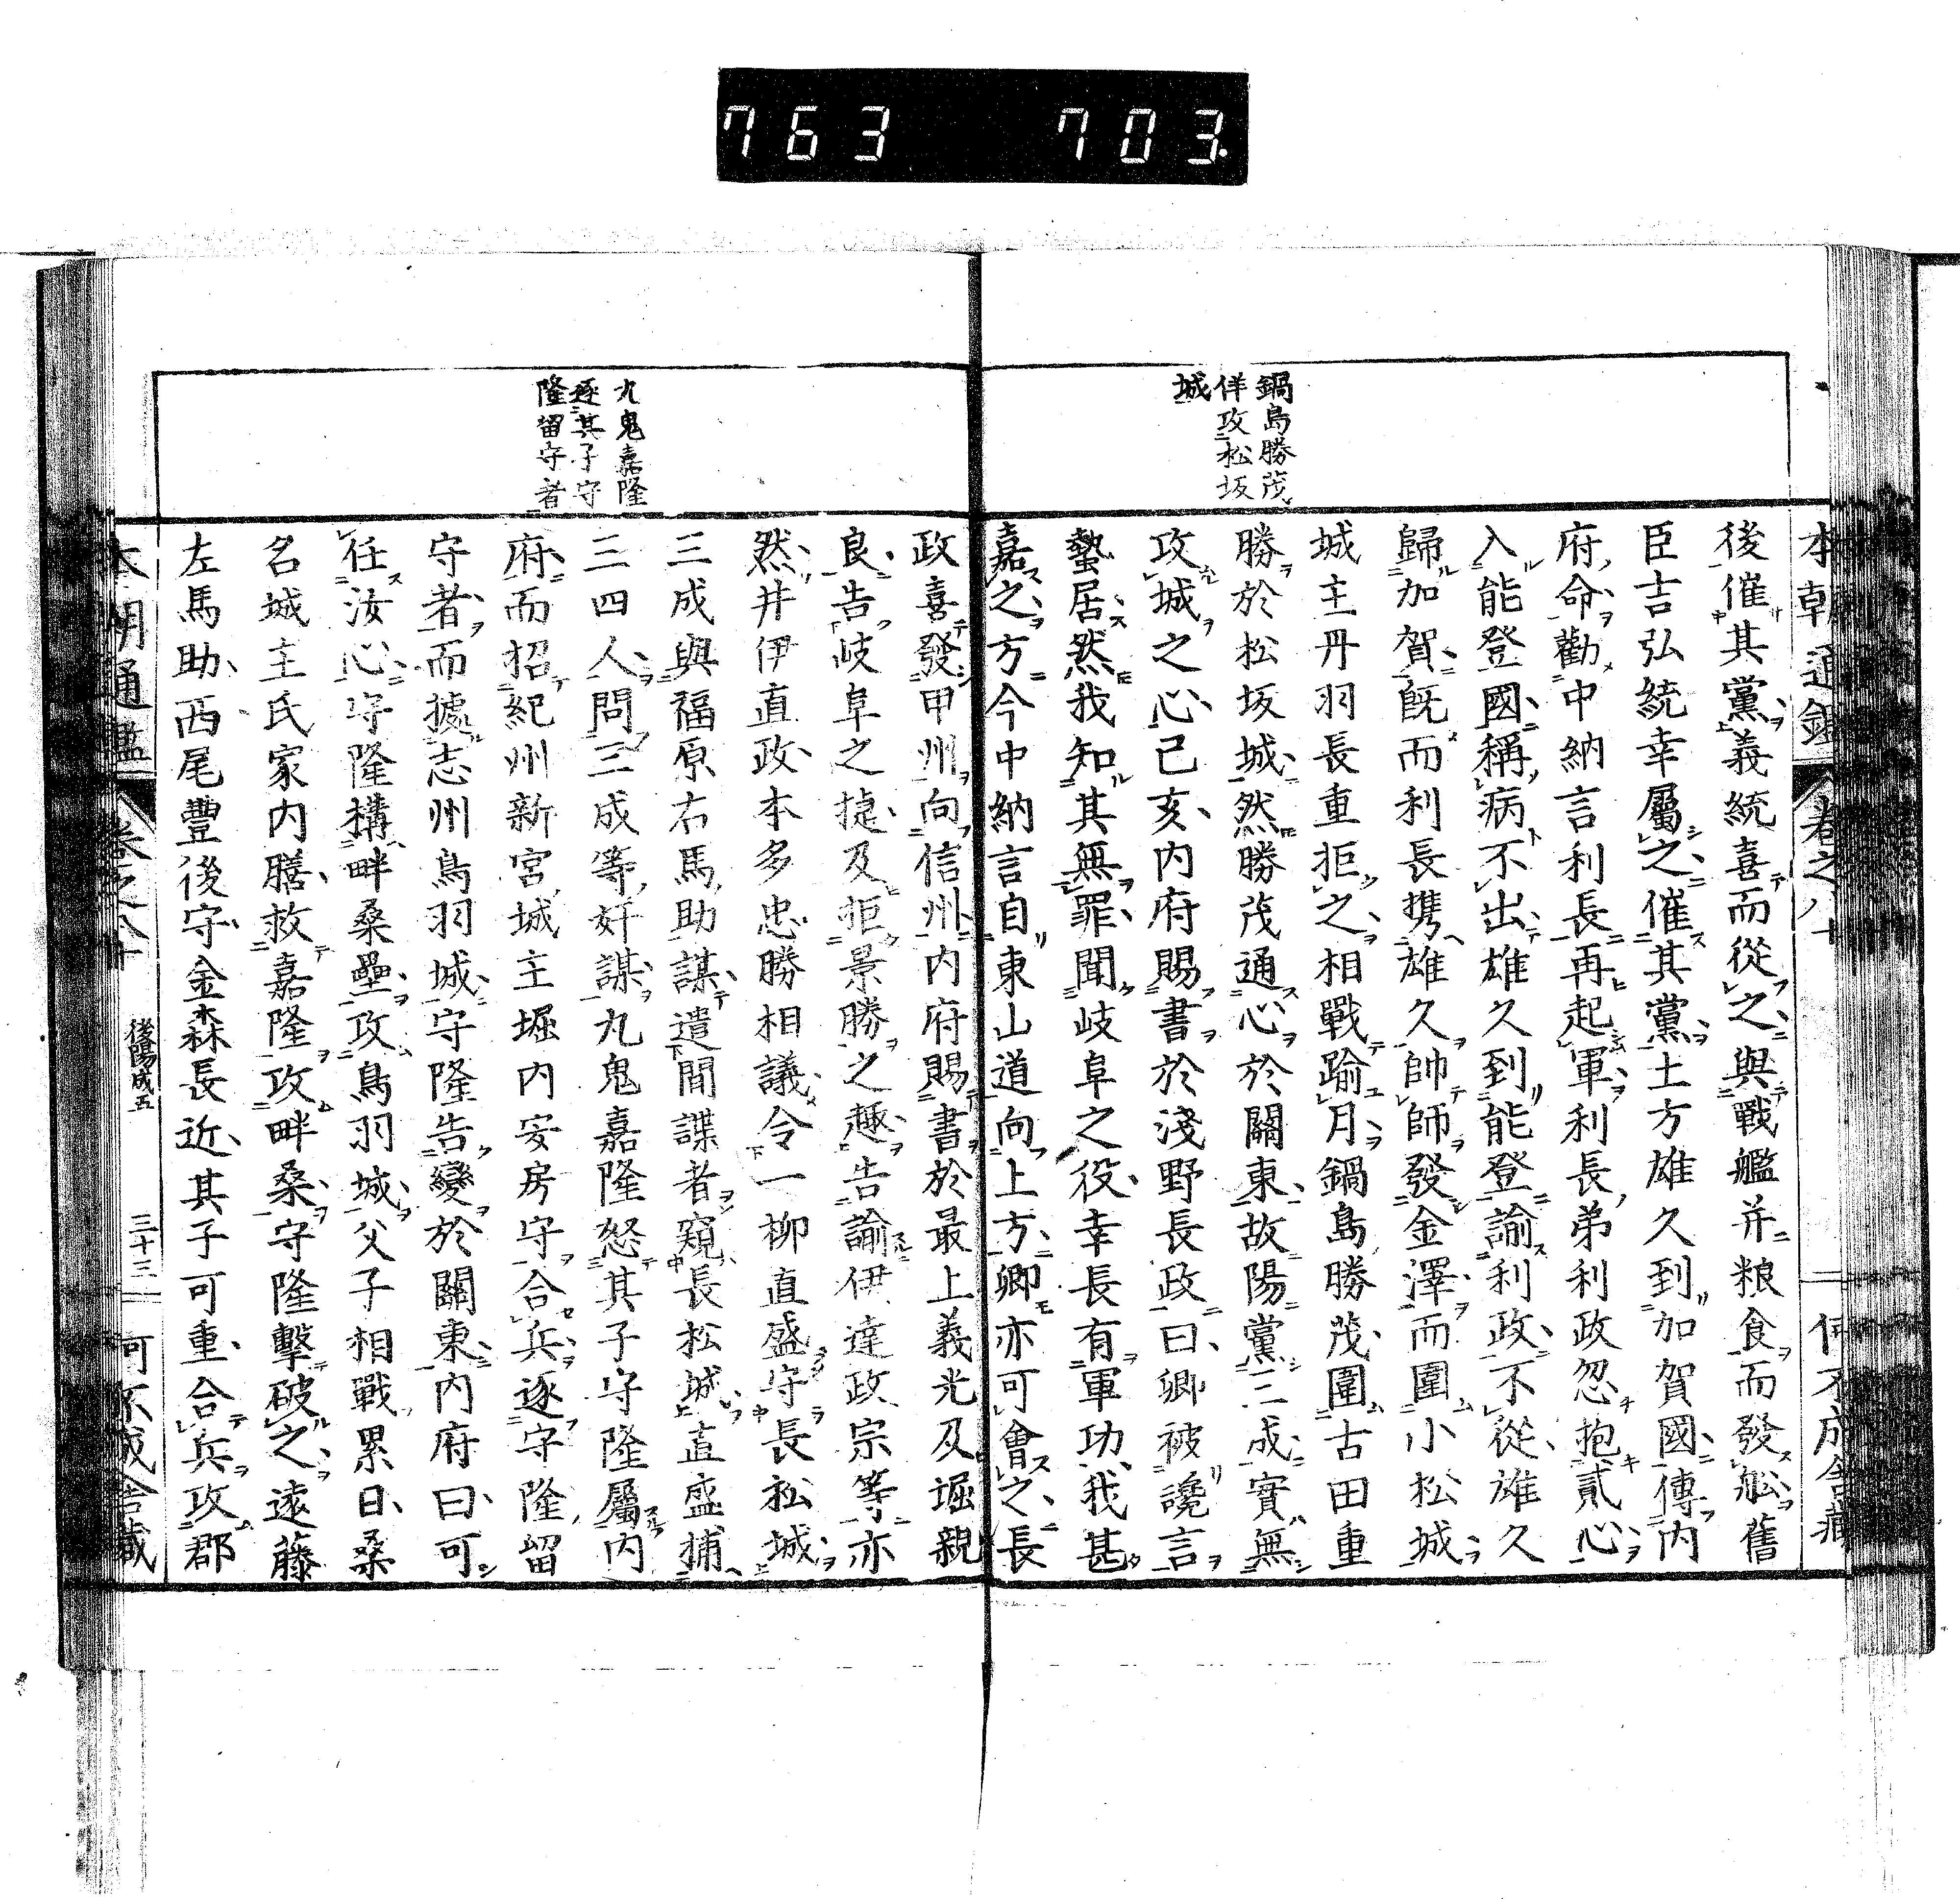 763 703.
本朝通鑑 卷之八十 何不成舍藏
鍋島勝茂
佯攻松坂
城
後催其黨義統喜而從之與戰艦并粮食而發舩舊
臣吉弘統幸屬之催其黨土方雄久到加賀國傳內
府命勸中納言利長再起軍利長弟利政忽抱貳心
入能登國稱病不出雄久到能登諭利政不從雄久
歸加賀既而利長携雄久帥師發金澤而圍小松城
城主丹羽長重拒之相戰踰月鍋島勝茂圍古田重
勝於松坂城然勝茂通心於關東故陽黨三成實無
攻城之心已亥內府賜書於淺野長政曰卿被讒言
蟄居然我知其無罪聞岐阜之役幸長有軍功我甚
嘉之方今中納言自東山道向上方卿亦可會之長
九鬼嘉隆
逐其子守
隆留守者
政喜發甲州向信州內府賜書於最上義光及堀親
良告岐阜之捷及拒景勝之趣告諭伊達政宗等亦
然井伊直政本多忠勝相議令一柳直盛守長松城
三成與福原右馬助謀遣間諜者窺長松城直盛捕
三四人問三成等奸謀九鬼嘉隆怒其子守隆屬內
府而招紀州新宮城主堀內安房守合兵逐守隆留
守者而據志州鳥羽城守隆告變於關東內府曰可
任汝心守隆構畔桑壘攻鳥羽城父子相戰累日桑
名城主氏家內膳救嘉隆攻畔桑守隆擊破之遠藤
左馬助西尾豐後守金森長近其子可重合兵攻郡
本朝通鑑 卷之八十 後陽成五 三十三 何不成舍藏